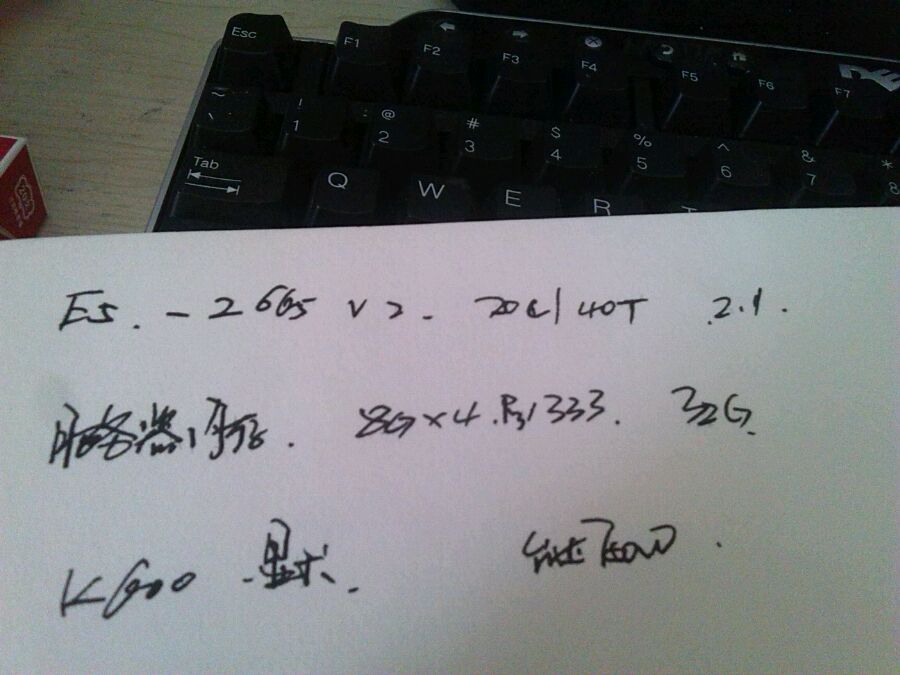 Esc F1 F2 F3 F4 F5 F6 F7
~ ` ! 1 @ 2 # 3 $ 4 % 5 ^ 6 & 7 * 8
Tab Q W E R T
E5.-2665 v2. 20C/40T 2.1.
服务器内存. 8G×4.R31333. 32G.
K600 显卡. 750W.